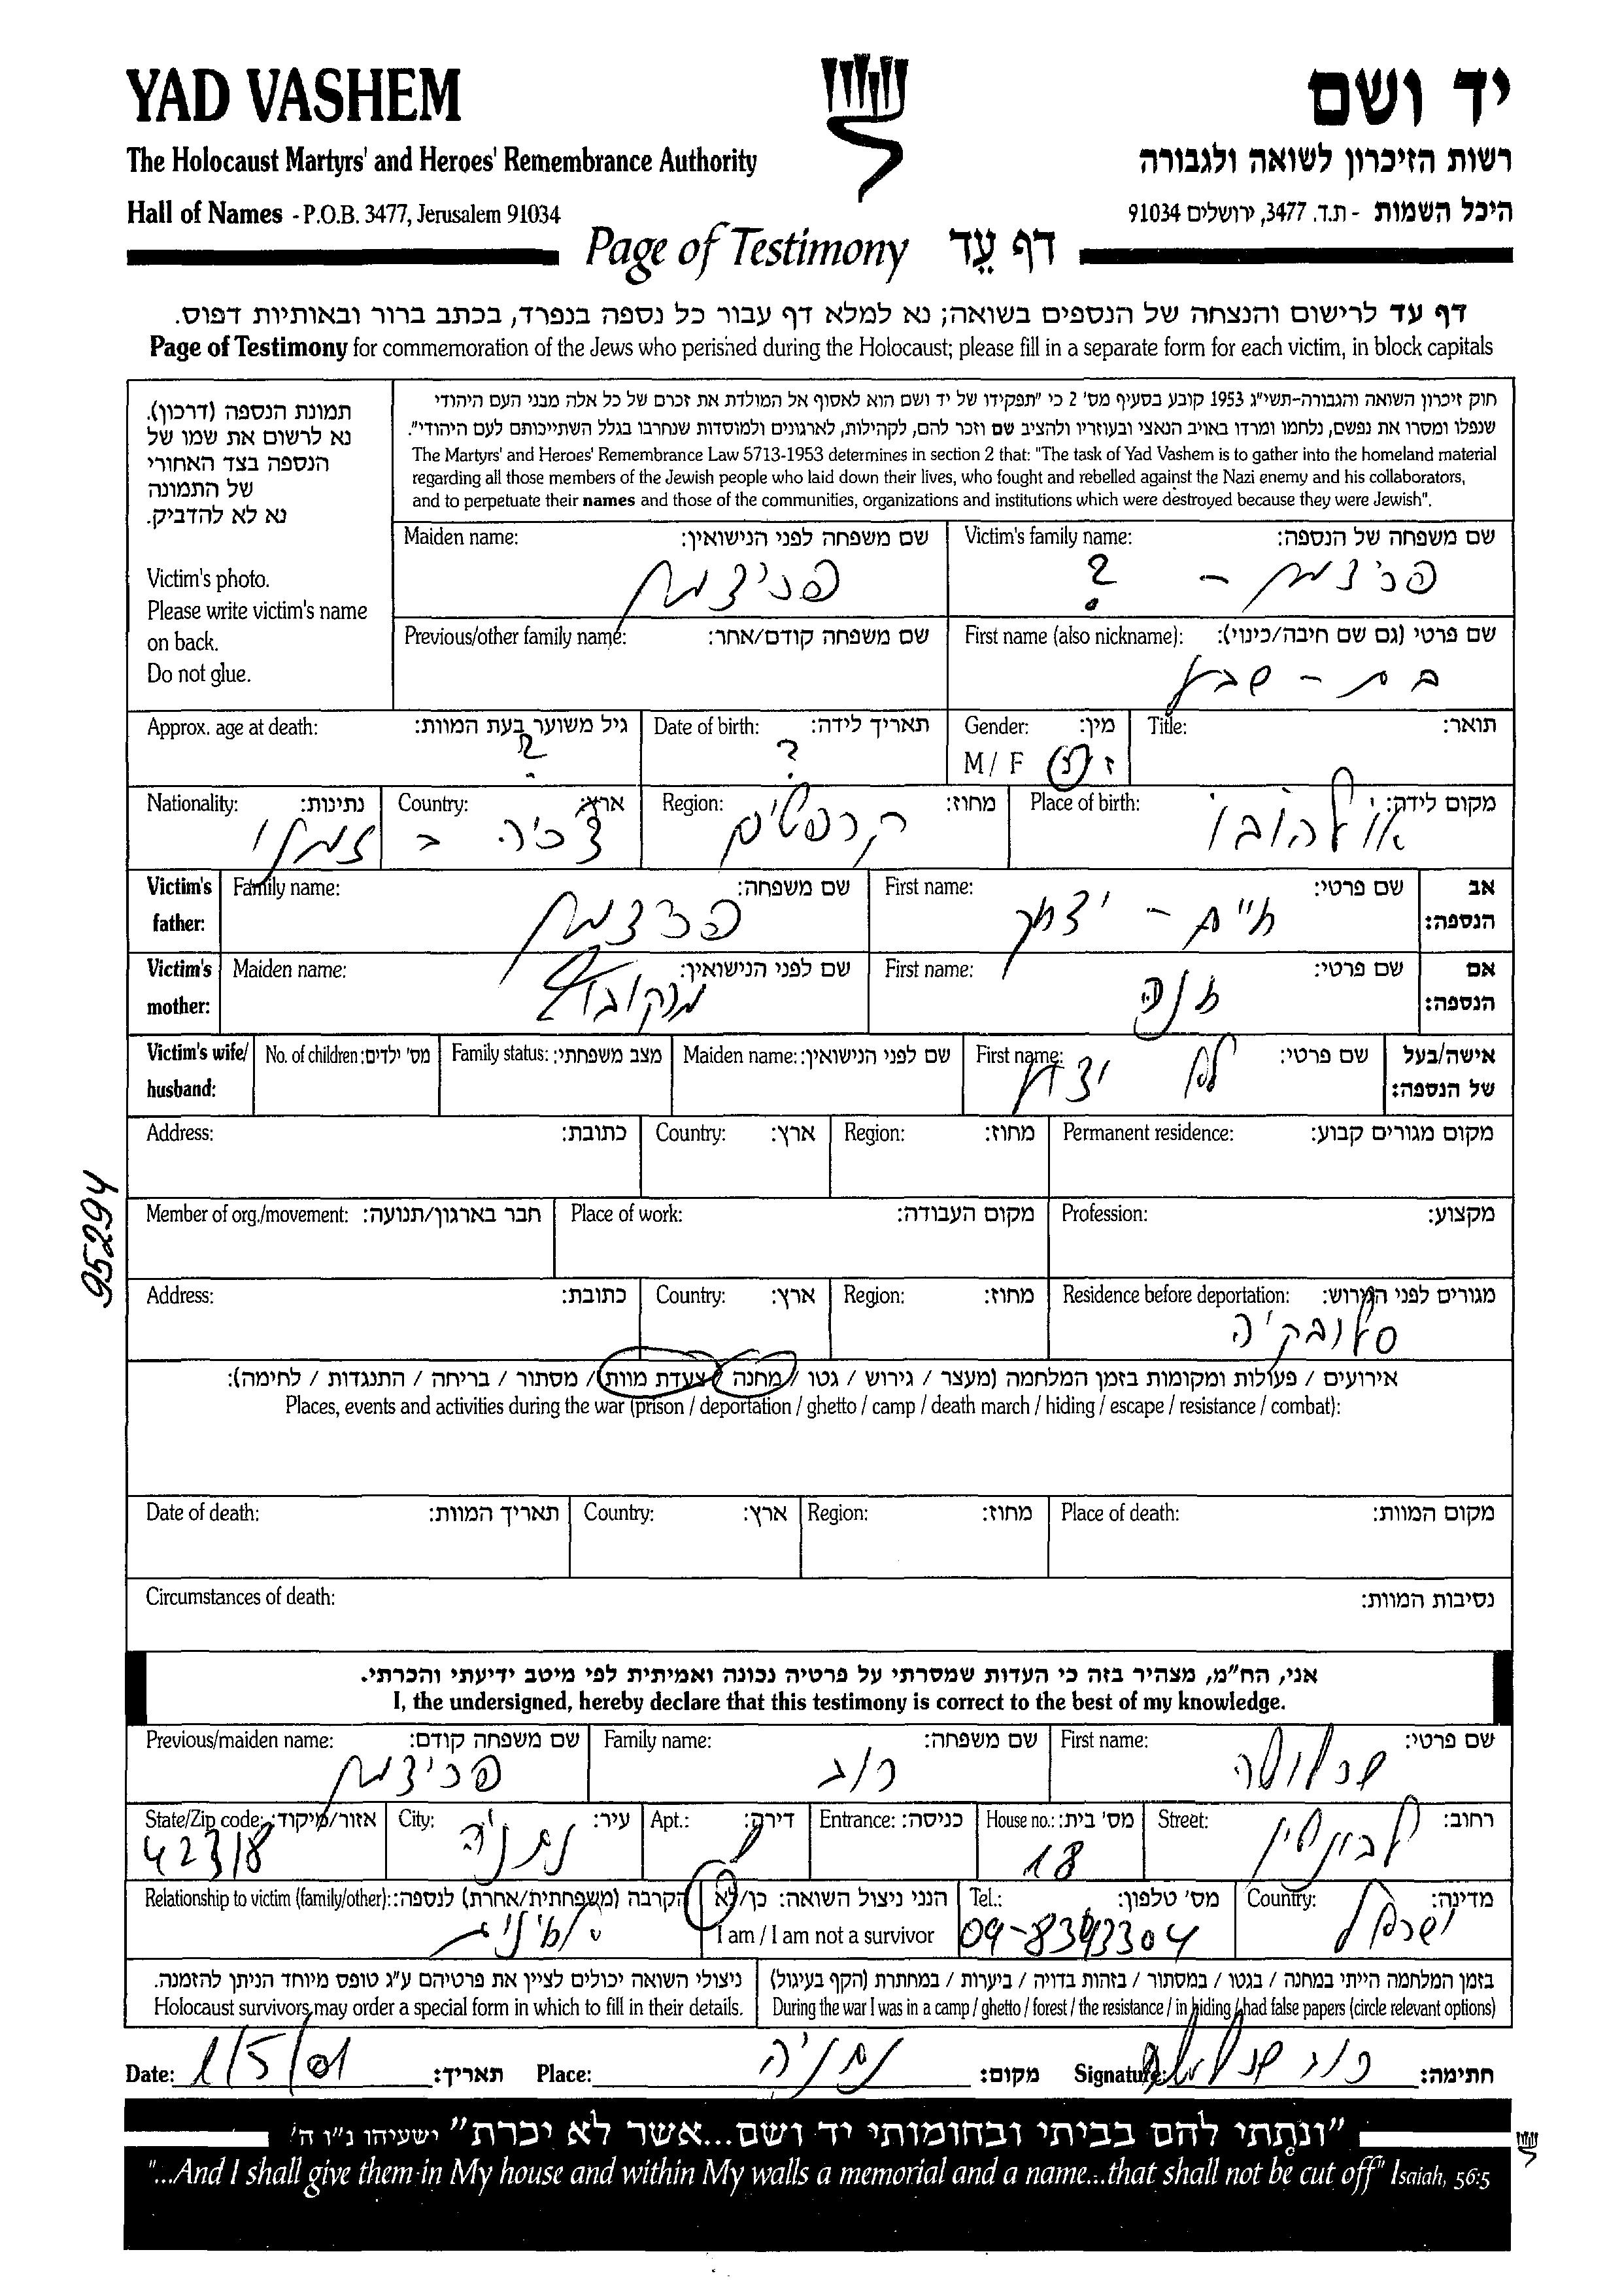 YAD VASHEM
יד ושם
The Holocaust Martyrs' and Heroes' Remembrance Authority
רשות הזיכרון לשואה ולגבורה
Hall of Names - P.O.B. 3477, Jerusalem 91034
היכל השמות - ת.ד. 3477, ירושלים 91034
Page of Testimony דף עֵד
דף עד לרישום והנצחה של הנספים בשואה; נא למלא דף עבור כל נספה בנפרד, בכתב ברור ובאותיות דפוס.
Page of Testimony for commemoration of the Jews who perished during the Holocaust; please fill in a separate form for each victim, in block capitals
תמונת הנספה (דרכון).
נא לרשום את שמו של
הנספה בצד האחורי
של התמונה
נא לא להדביק.
Victim's photo.
Please write victim's name
on back.
Do not glue.
חוק זיכרון השואה והגבורה-תשי"ג 1953 קובע בסעיף מס' 2 כי "תפקידו של יד ושם הוא לאסוף אל המולדת את זכרם של כל אלה מבני העם היהודי
שנפלו ומסרו את נפשם, נלחמו ומרדו באויב הנאצי ובעוזריו ולהציב שם וזכר להם, לקהילות, לארגונים ולמוסדות שנחרבו בגלל השתייכותם לעם היהודי".
The Martyrs' and Heroes' Remembrance Law 5713-1953 determines in section 2 that: "The task of Yad Vashem is to gather into the homeland material
regarding all those members of the Jewish people who laid down their lives, who fought and rebelled against the Nazi enemy and his collaborators,
and to perpetuate their names and those of the communities, organizations and institutions which were destroyed because they were Jewish".
Victim's family name: שם משפחה של הנספה:
?
Maiden name: שם משפחה לפני הנישואין:
First name (also nickname): שם פרטי (גם שם חיבה/כינוי):
בת - שבע
Previous/other family name: שם משפחה קודם/אחר:
Title: תואר:
Gender: מין:
M / F ז נ
Date of birth: תאריך לידה:
?
Approx. age at death: גיל משוער בעת המוות:
?
Place of birth: מקום לידה:
Region: מחוז:
Country: ארץ:
Nationality: נתינות:
Victim's father: אב הנספה:
First name: שם פרטי:
חיים - יצחק
Family name: שם משפחה:
Victim's mother: אם הנספה:
First name: שם פרטי:
חנה
Maiden name: שם לפני הנישואין:
Victim's wife/ husband: אישה/בעל של הנספה:
First name: שם פרטי:
לא
Maiden name: שם לפני הנישואין:
Family status: מצב משפחתי:
No. of children: מס' ילדים:
Permanent residence: מקום מגורים קבוע:
Region: מחוז:
Country: ארץ:
Address: כתובת:
Profession: מקצוע:
Place of work: מקום העבודה:
Member of org./movement: חבר בארגון/תנועה:
Residence before deportation: מגורים לפני הגירוש:
סלובקיה
Region: מחוז:
Country: ארץ:
Address: כתובת:
95294
אירועים / פעולות ומקומות בזמן המלחמה (מעצר / גירוש / גטו / מחנה / צעדת מוות / מסתור / בריחה / התנגדות / לחימה):
Places, events and activities during the war (prison / deportation / ghetto / camp / death march / hiding / escape / resistance / combat):
Place of death: מקום המוות:
Region: מחוז:
Country: ארץ:
Date of death: תאריך המוות:
Circumstances of death: נסיבות המוות:
אני, הח"מ, מצהיר בזה כי העדות שמסרתי על פרטיה נכונה ואמיתית לפי מיטב ידיעתי והכרתי.
I, the undersigned, hereby declare that this testimony is correct to the best of my knowledge.
First name: שם פרטי:
Family name: שם משפחה:
Previous/maiden name: שם משפחה קודם:
Street: רחוב:
House no.: מס' בית:
18
Entrance: כניסה:
Apt.: דירה:
City: עיר:
נתניה
State/Zip code: אזור/מיקוד:
42318
Country: מדינה:
ישראל
Tel.: מס' טלפון:
09-8343304
הנני ניצול השואה: כן/לא
I am / I am not a survivor
Relationship to victim (family/other): הקרבה (משפחתית/אחרת) לנספה:
בזמן המלחמה הייתי במחנה / בגטו / במסתור / בזהות בדויה / ביערות / במחתרת (הקף בעיגול)
During the war I was in a camp / ghetto / forest / the resistance / in hiding / had false papers (circle relevant options)
ניצולי השואה יכולים לציין את פרטיהם ע"ג טופס מיוחד הניתן להזמנה.
Holocaust survivors may order a special form in which to fill in their details.
Date: 1/5/01 תאריך:
Place: נתניה מקום:
Signature: חתימה:
"ונתתי להם בביתי ובחומותי יד ושם...אשר לא יכרת" ישעיהו נ"ו ה'
"...And I shall give them in My house and within My walls a memorial and a name...that shall not be cut off" Isaiah, 56:5